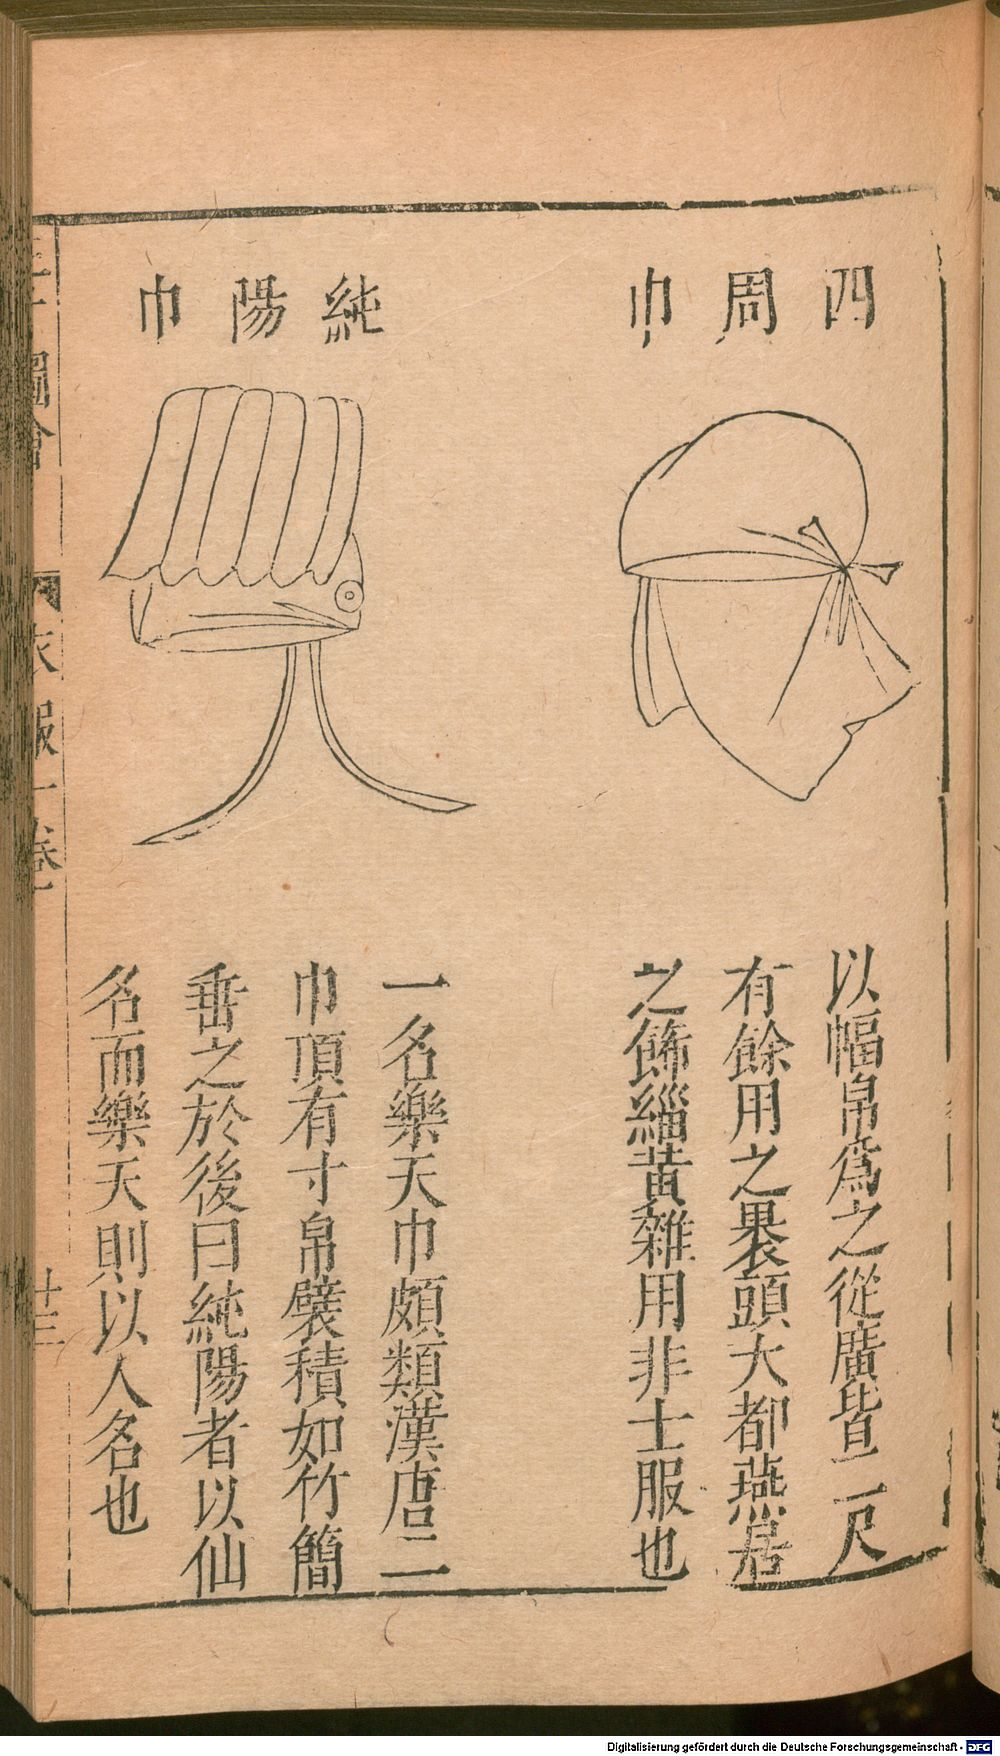 四周巾
以幅帛爲之從廣皆二尺
有餘用之裹頭大都燕居
之飾緇黄雜用非士服也
純陽巾
一名樂天巾頗類漢唐二
巾頂有寸帛襞積如竹簡
垂之於後曰純陽者以仙
名而樂天則以人名也
圖會
衣服一卷
十三
Digitalisierung gefördert durch die Deutsche Forschungsgemeinschaft - DFG